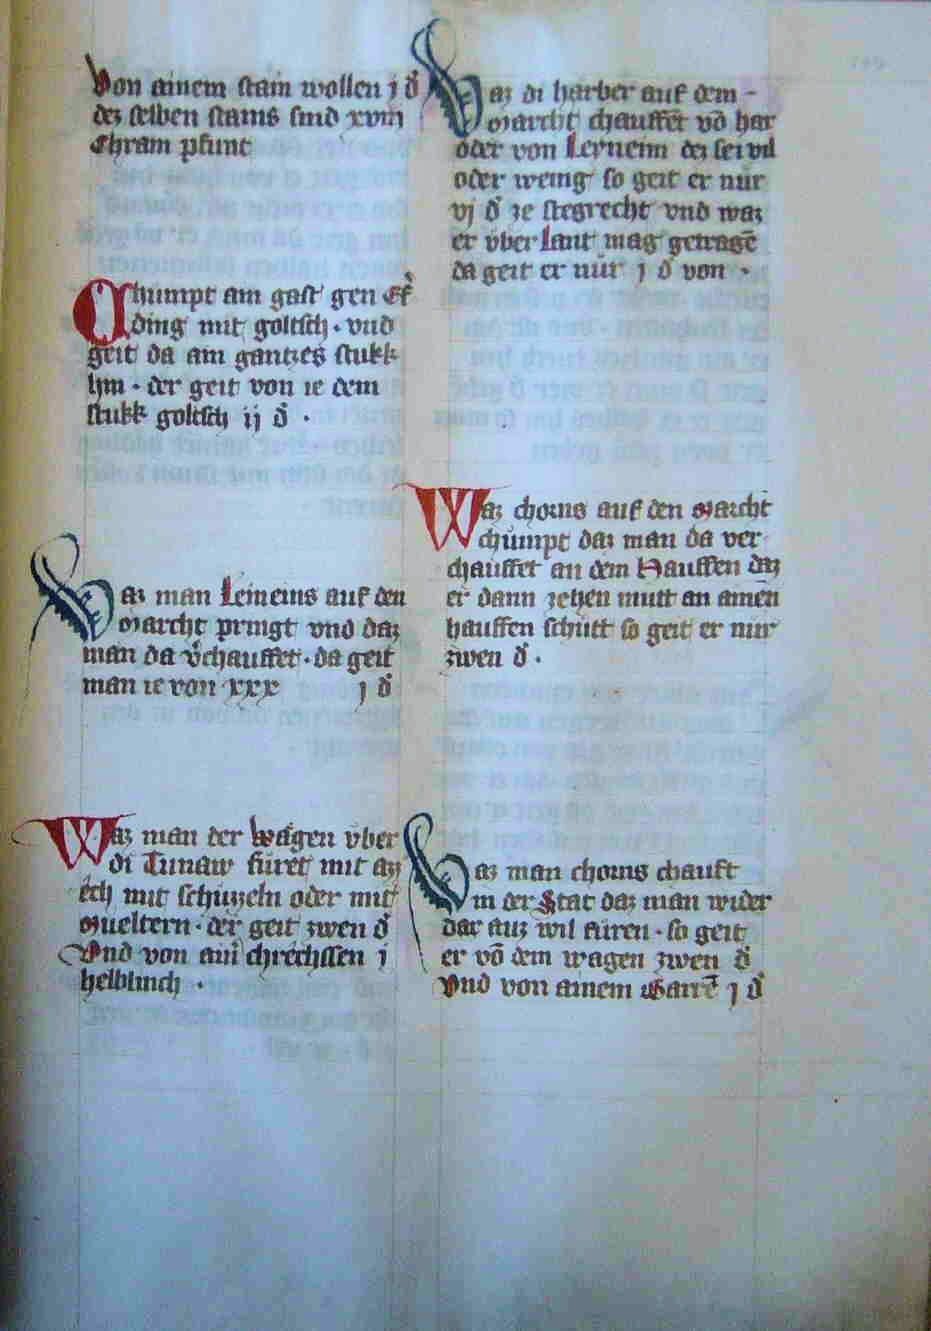 Von ainem stain wollen j d̄
dez selben stains sind xviij
Chram pfunt
Chumpt ain gast gen Ef
ding mit goltsch · vnd
geit da ain gantzes stukk
hin · der geit von ie dem
stukk goltsch ij d̄ ·
Waz man Leineins auf den
Marcht pringt vnd daz
man da v̄chauffet · da geit
man ie von xxx j d̄
Waz man der Wägen vber
di Tunaw füret mit
ech mit schüzzeln oder mit
Mueltern · der geit zwen d̄
Vnd von chrechssen j
helblinch ·
Waz di harber auf dem -
Marcht chauffet vō har
oder von Leyneim dez sei vil
oder wenig so geit er nür
vj d̄ ze stegrecht vnd waz
er vber Lant mag getragē
da geit er nür j d̄ von ·
Waz chorns auf den Marcht
chumpt daz man da ver
chauffet an dem Hauffen daz
er dann zehen mutt an ainen
hauffen schütt so geit er nür
zwen d̄ ·
Waz man chorns chauft
in der Stat daz man wider
dar auz wil füren · so geit
er vō dem wagen zwen d̄
Vnd von ainem Garrē j d̄